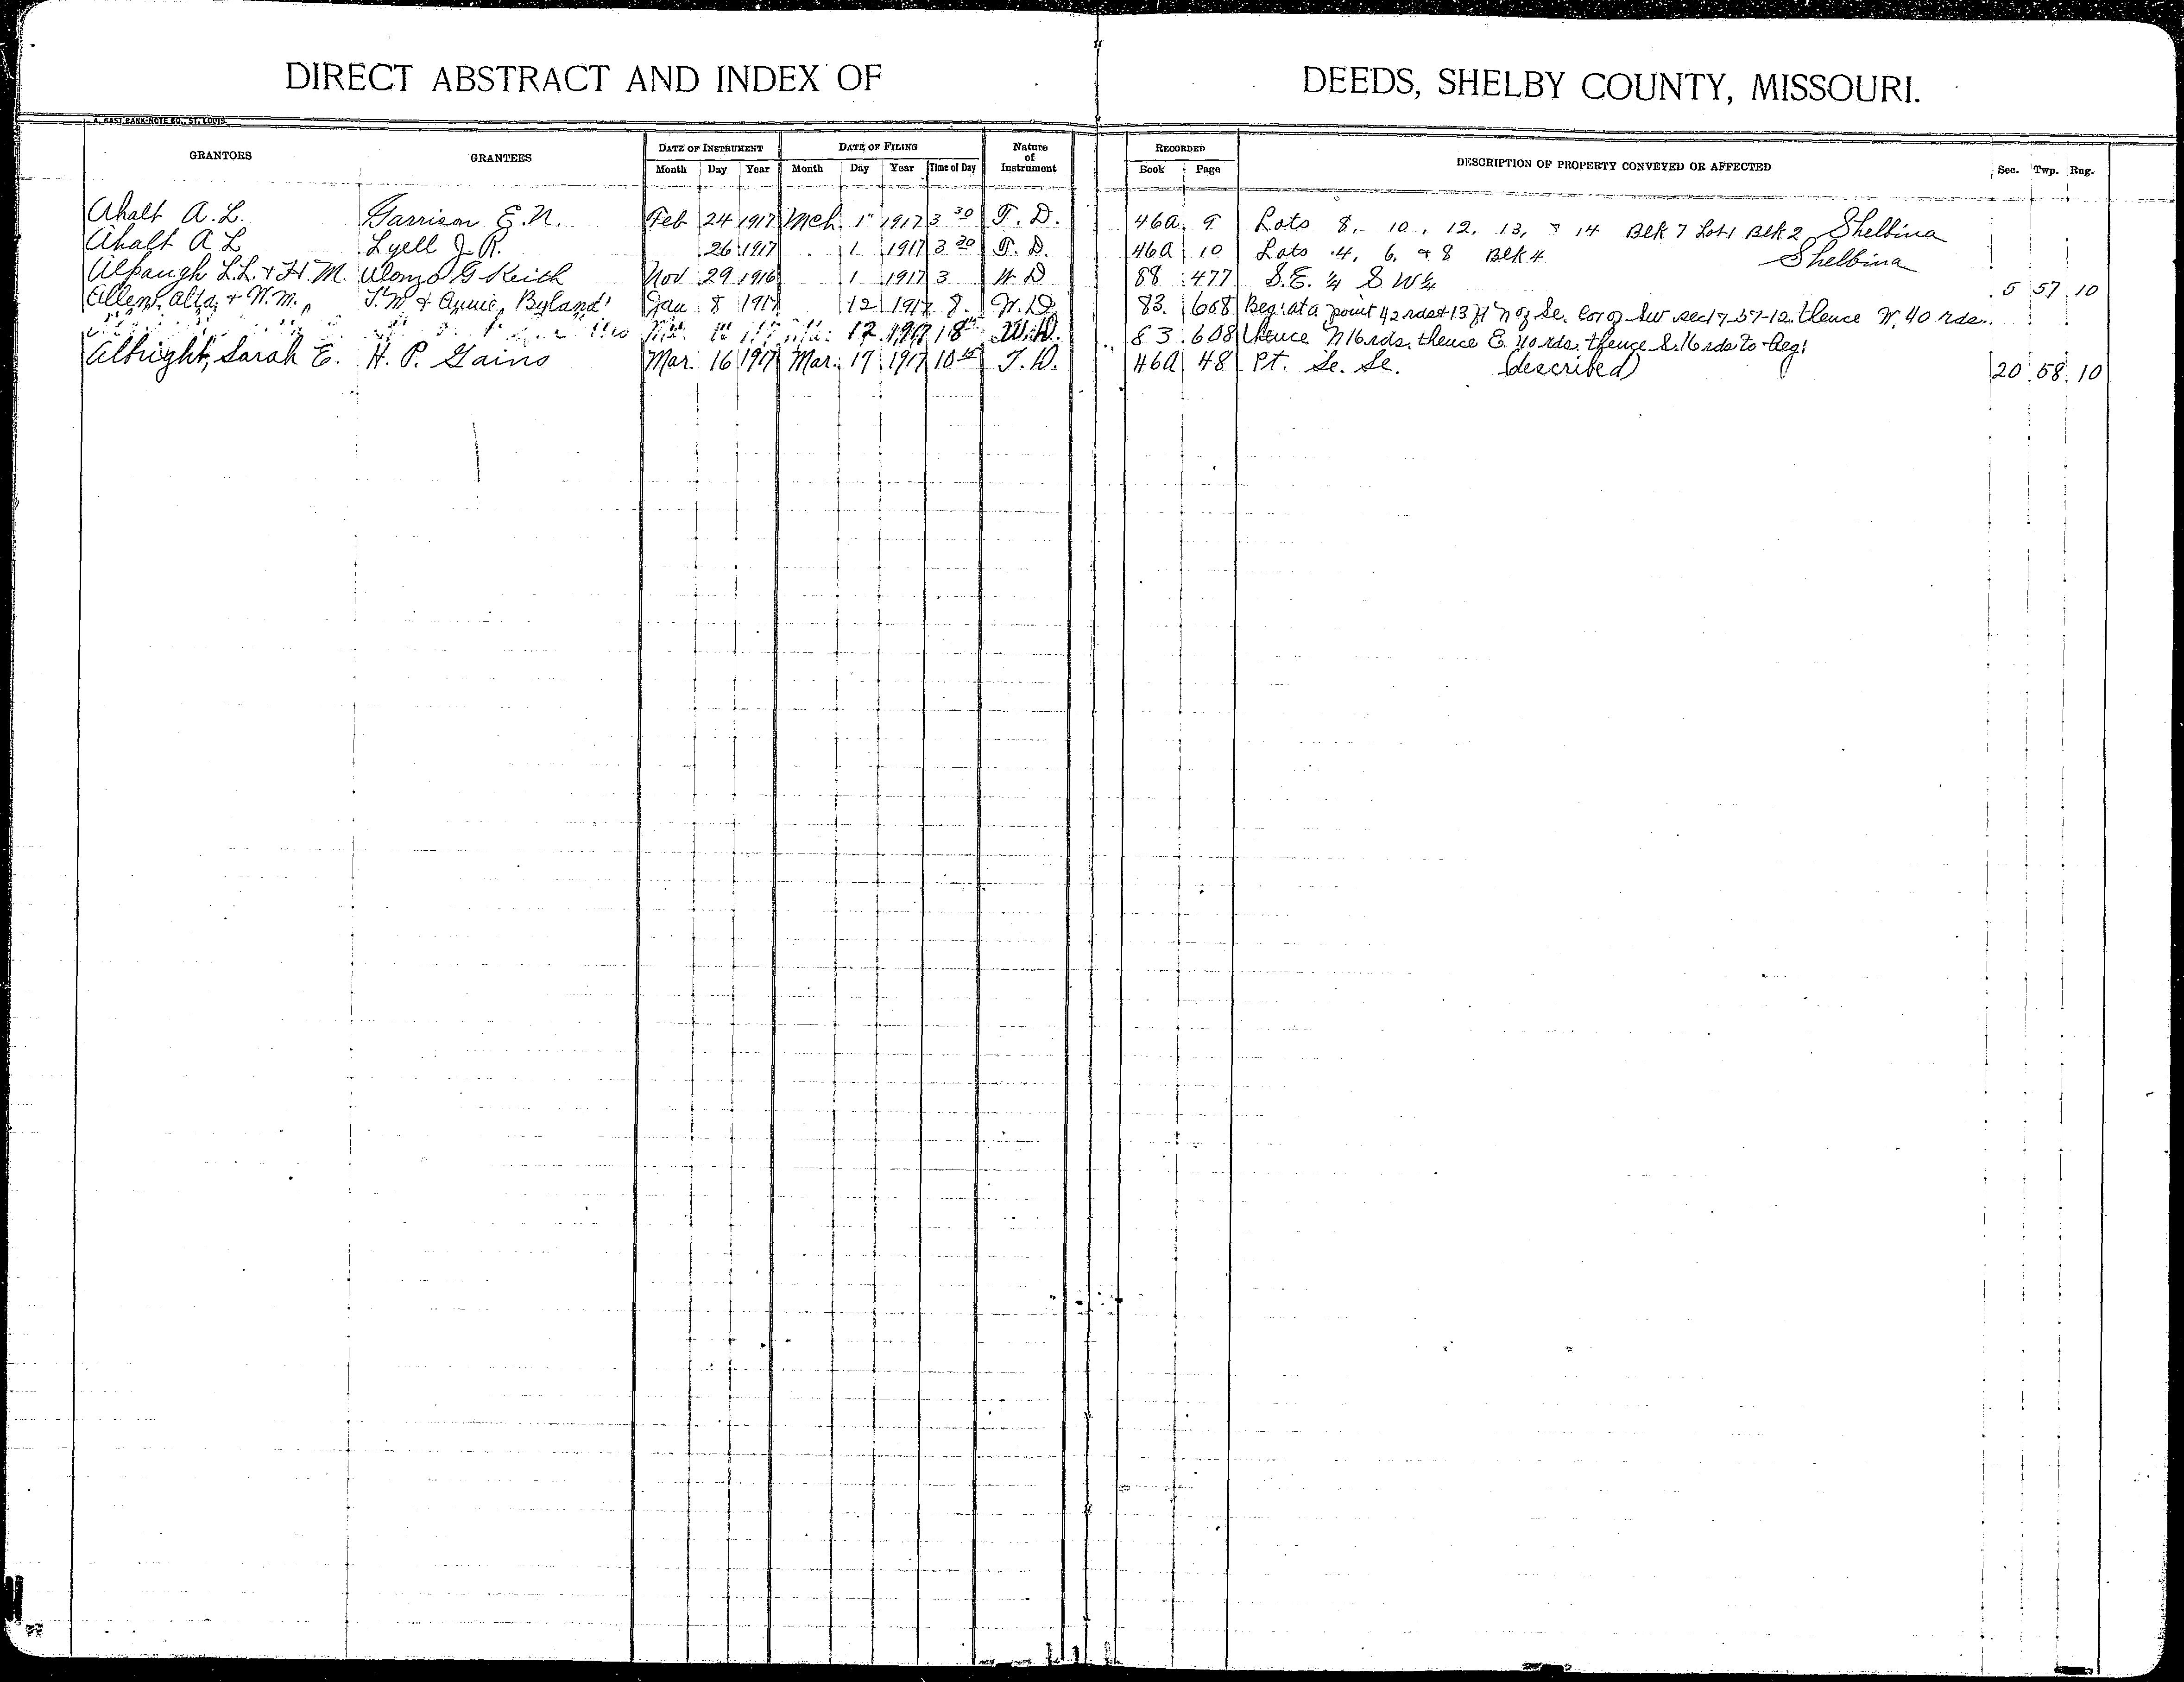 DIRECT ABSTRACT AND INDEX OF DEEDS, SHELBY COUNTY, MISSOURI.
GRANTORS GRANTEES DATE OF INSTRUMENT DATE OF FILING Nature of Instrument RECORDED DESCRIPTION OF PROPERTY CONVEYED OR AFFECTED Sec. Twp. Rng.
Month Day Year Month Day Year Time of Day Book Page
Ahalt A. L. Garrison E. N. Feb 24 1917 Mch 1" 1917 3 30 T. D. 46a 9 Lots 8, 10, 12, 13, & 14 Blk 7 Lot 1 Blk 2 Shelbina
Ahalt A L Lyell J. R. 26 1917 1 1917 3 30 T. D. 46a 10 Lots 4, 6, & 8 Blk 4 Shelbina
Alpaugh L.L. & H. M. Alonzo G Keith Nov 29 1916 1 1917 3 W. D 88 477 S.E. ¼ S W ¼ 5 57 10
Allen, Alta, & W.M. & Annie Byland Jan 8 1917 12 1917 8 W. D 83 608 Beg: at a point 42 rds + 13 ft N of Se. Cor of Sw sec 17-57-12. thence W. 40 rds.
12 1917 8 W. D. 83 608 thence N 16 rds. thence E. 40 rds. thence S. 16 rds to beg:
Albright, Sarah E. H. P. Gains Mar. 16 1917 Mar. 17 1917 10 T. D. 46a 48 Pt. Se. Se. (described) 20 58 10